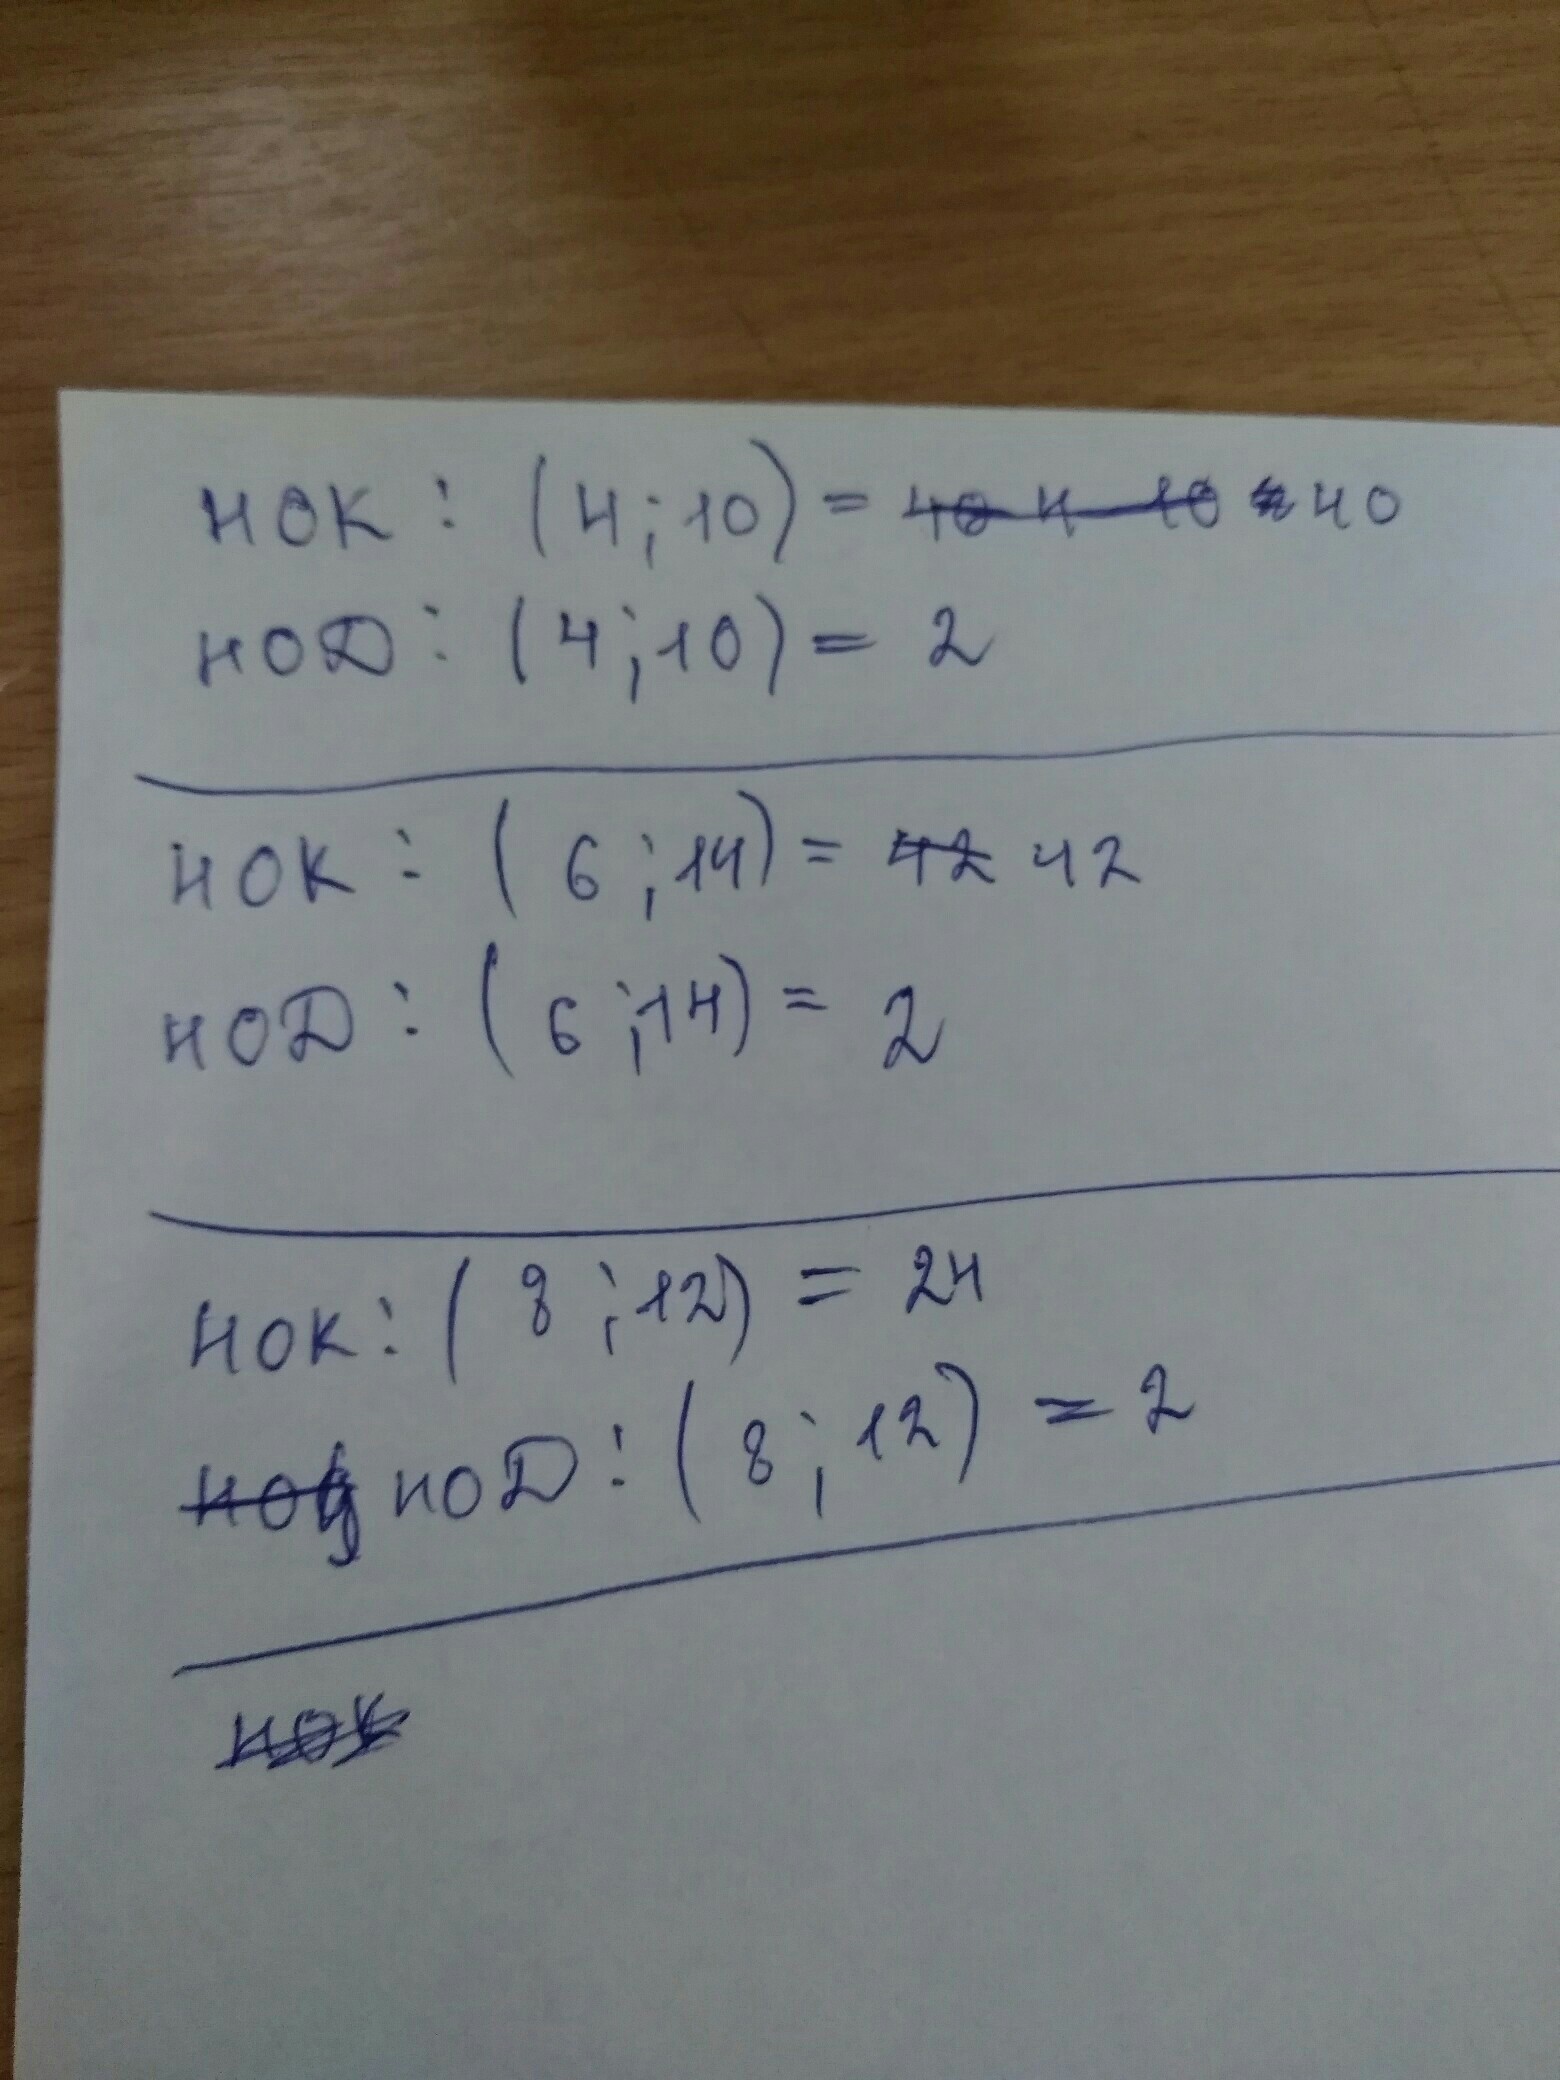 НОК : (4;10) = 40 4 10 40
НОД : (4;10) = 2
НОК : (6;14) = 42 42
НОД : (6;14) = 2
НОК : (8;12) = 24
НОД : (8;12) = 2
НОК